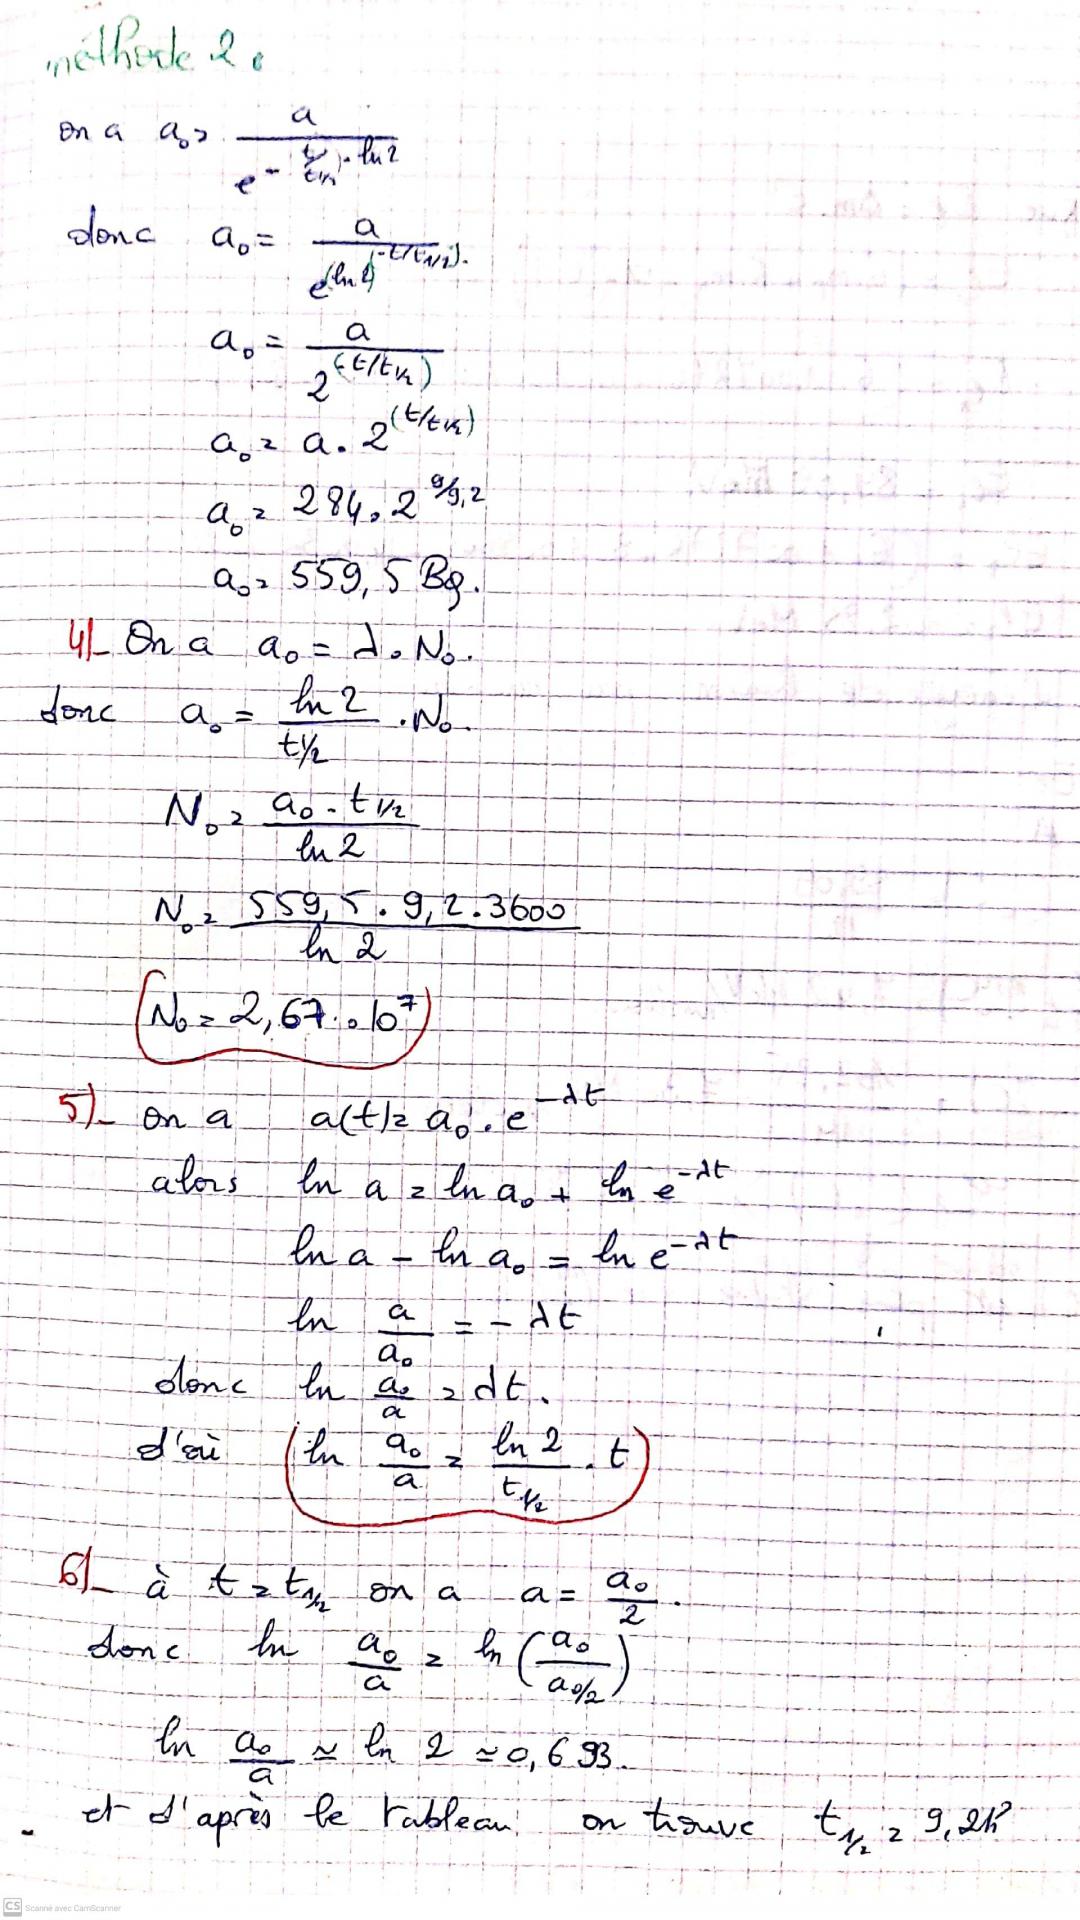 méthode 2 :
on a a₀ = a / e^(-(t/t1/2) . ln 2)
donc a₀ = a / e^((ln 2)(-t/t1/2)).
a₀ = a / 2^(-t/t1/2)
a₀ = a . 2^(t/t1/2)
a₀ = 284 . 2^(9/9,2)
a₀ = 559,5 Bq.
4)- On a a₀ = λ . N₀.
donc a₀ = ln 2 / t1/2 . N₀.
N₀ = a₀ . t1/2 / ln 2
N₀ = 559,5 . 9,2 . 3600 / ln 2
N₀ = 2,67 . 10⁷
5)- on a a(t) = a₀ . e^(-λt)
alors ln a = ln a₀ + ln e^(-λt)
ln a - ln a₀ = ln e^(-λt)
ln a/a₀ = - λt
donc ln a₀/a = λt.
d'où (ln a₀/a = ln 2 / t1/2 . t)
6)- à t = t1/2 on a a = a₀/2.
donc ln a₀/a = ln (a₀ / a₀/2)
ln a₀/a ≃ ln 2 ≃ 0,693.
et d'après le tableau on trouve t1/2 = 9,2h
CS Scanné avec CamScanner